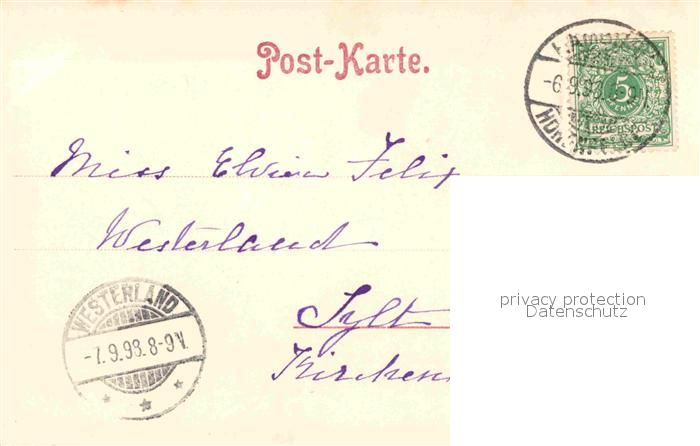 Post-Karte.
-6.9.98.
5
REICHSPOST
Miss Elvira Felix
Westerland
Sylt
Kirchen
WESTERLAND
-7.9.98.8-9V.
privacy protection
Datenschutz